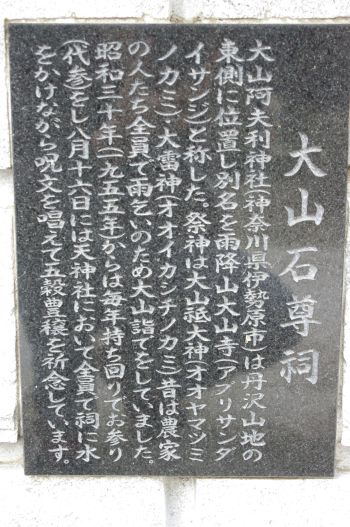 大山石尊祠
大山阿夫利神社(神奈川県伊勢原市)は丹沢山地の
東側に位置し別名を雨降山大山寺(アブリサンダ
イサンジ)と称した、祭神は大山祇大神(オオヤマツミ
ノカミ)、大雷神(オオイカシチノカミ)昔は農家
の人たち全員で雨乞いのため大山詣でをしていました。
昭和三十年(一九五五年)からは毎年持ち回りでお参り
(代参)をし八月十六日には天神社において全員で祠に水
をかけながら呪文を唱えて五穀豊穣を祈念しています。